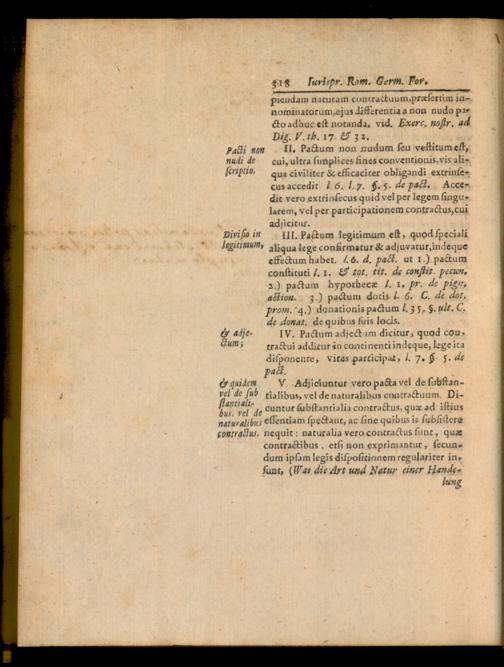 318 Iurispr. Rom. Germ. For.
piendam naturam contractuum, præsertim in-
nominatorum, ejus differentia a non nudo pa-
cto adhuc est notanda. vid. Exerc. nostr. ad
Dig. V. th. 17. & 32.
Pacti non
nudi de
scriptio,
II. Pactum non nudum seu vestitum est,
cui, ultra simplices fines conventionis, vis ali-
qua civiliter & efficaciter obligandi extrinse-
cus accedit l. 6. l. 7. §. 5. de pact. Acce-
dit vero extrinsecus quid vel per legem singu-
larem, vel per participationem contractus, cui
adjicitur.
Divisio in
legitimum,
III. Pactum legitimum est, quod speciali
aliqua lege confirmatur & adjuvatur, indeque
effectum habet. l. 6. d. pact. ut 1.) pactum
constituti l. 1. & tot. tit. de constit. pecun.
2.) pactum hypothecæ l. 1. pr. de pign.
action. 3.) pactum dotis l. 6. C. de dot.
prom. 4.) donationis pactum l. 35. §. ult. C.
de donat. de quibus suis locis.
& adje-
ctum;
IV. Pactum adjectum dicitur, quod con-
tractui additur in continenti indeque, lege ita
disponente, vires participat, l. 7. §. 5. de
pact.
& quidem
vel de sub
stantiali-
bus, vel de
naturalibus
contractus.
V. Adjiciuntur vero pacta vel de substan-
tialibus, vel de naturalibus contractuum. Di-
cuntur substantialia contractus, quæ ad istius
essentiam spectant, ac sine quibus is subsistere
nequit: naturalia vero contractus sunt, quæ
contractibus, etsi non exprimantur, secun-
dum ipsam legis dispositionem regulariter in-
sunt, (Was die Art und Natur einer Hande-
lung